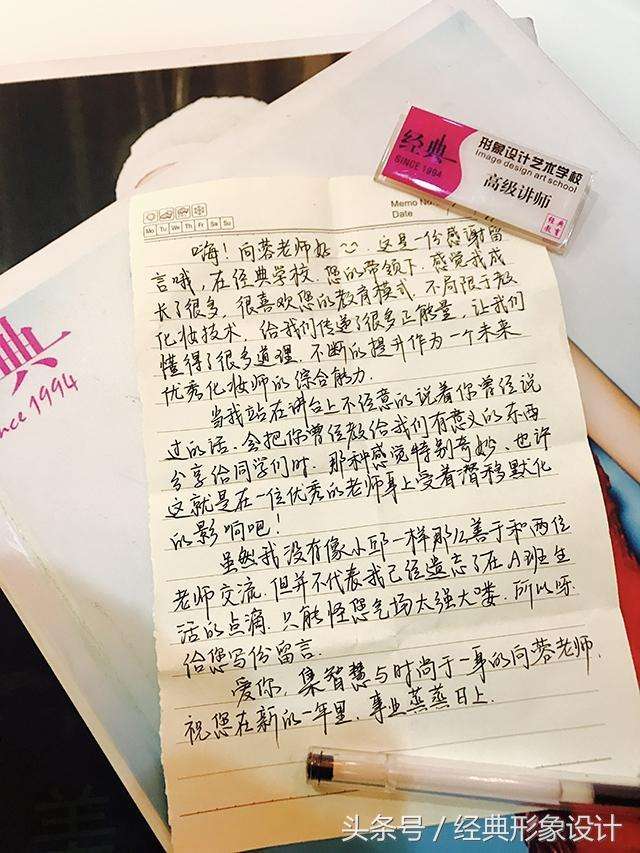 经典
SINCE 1994
形象设计艺术学校
Image design art school
高级讲师
经典
教育
Memo No.
Date
Mo Tu We Th Fr Sa Su
嗨！向蓉老师好 这是一份感谢留
言哦，在经典学校，您的带领下，感觉我成
长了很多，很喜欢您的教育模式，不局限于教
化妆技术，给我们传递了很多正能量，让我们
懂得了很多道理，不断的提升作为一个未来
优秀化妆师的综合能力．
当我站在讲台上不经意的说着你曾经说
过的话，会把你曾经教给我们有意义的东西
分享给同学们时，那种感觉特别奇妙，也许
这就是在一位优秀的老师身上受着潜移默化
的影响吧！
虽然我没有像小邱一样那么善于和两位
老师交流，但并不代表我已经遗忘了在A班生
活的点滴，只能怪您气场太强大喽，所以
给您写份留言．
爱你，集智慧与时尚于一身的向蓉老师，
祝您在新的一年里，事业蒸蒸日上．
典
ince 1994
头条号 / 经典形象设计